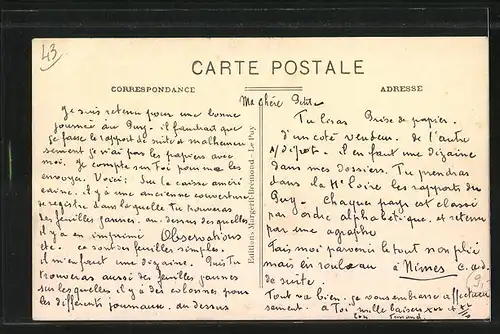 43
CARTE POSTALE
CORRESPONDANCE
ADRESSE
Ma chère Petite
Je suis retenu pour une bonne
journée au Puy. il faudrait que
je fasse le rapport de suite et malheureu
sement je n'ai pas les papiers avec
moi. Je compte sur Toi pour me les
envoyer. Voici: Sur la caisse améri
caine, il y a une ancienne couverture
de registre dans laquelle Tu trouveras
des feuilles jaunes. au dessus desquelles
il y a en imprimé Observations
etc. ce sont des feuilles simples.
il m'en faut une dizaine. Puis Tu
trouveras aussi des feuilles jaunes
sur lesquelles il y a des colonnes pour
les différents journaux. au dessus
Editions Margerit-Brémond - Le Puy
Tu liras Prise de papier.
d'un coté vendeur. de l'autre
s/ dépot. il en faut une dizaine
dans mes dossiers. Tu prendras
dans la Hte Loire les rapports du
Puy. Chaque pays est classé
par ordre alphabetique. et retenu
par une agraphe
Fais moi parvenir le tout non plié
mais en rouleau à Nimes
de suite.
Tout va bien. je vous embrasse affectueu
sement. à Toi mille baisers